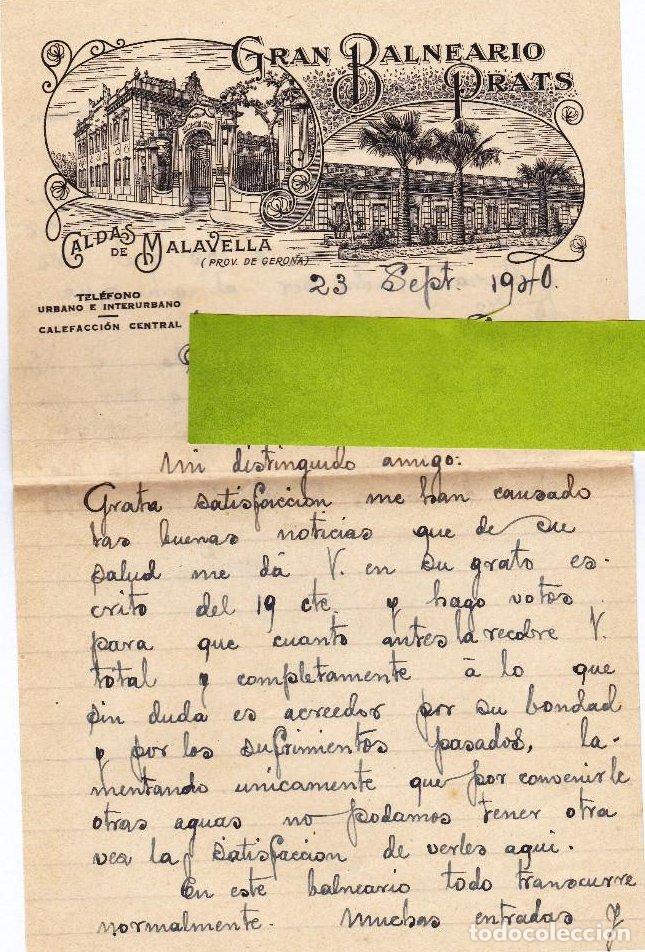 GRAN BALNEARIO
PRATS
CALDAS
DE MALAVELLA
(PROV. DE GERONA)
23 Sept. 1940.
TELÉFONO
URBANO E INTERURBANO
CALEFACCIÓN CENTRAL
Mi distinguido amigo:
Grata satisfaccion me han causado
las buenas noticias que de su
salud me dá V. en su grato es-
crito del 19 cte. y hago votos
para que cuanto antes la recobre V.
total y completamente à lo que
sin duda es acreedor por su bondad
y por los sufrimientos pasados, la-
mentando unicamente que por convenirle
otras aguas no podamos tener otra
vez la satisfaccion de verles aqui.
En este balneario todo transcurre
normalmente. Muchas entradas y
todocoleccion